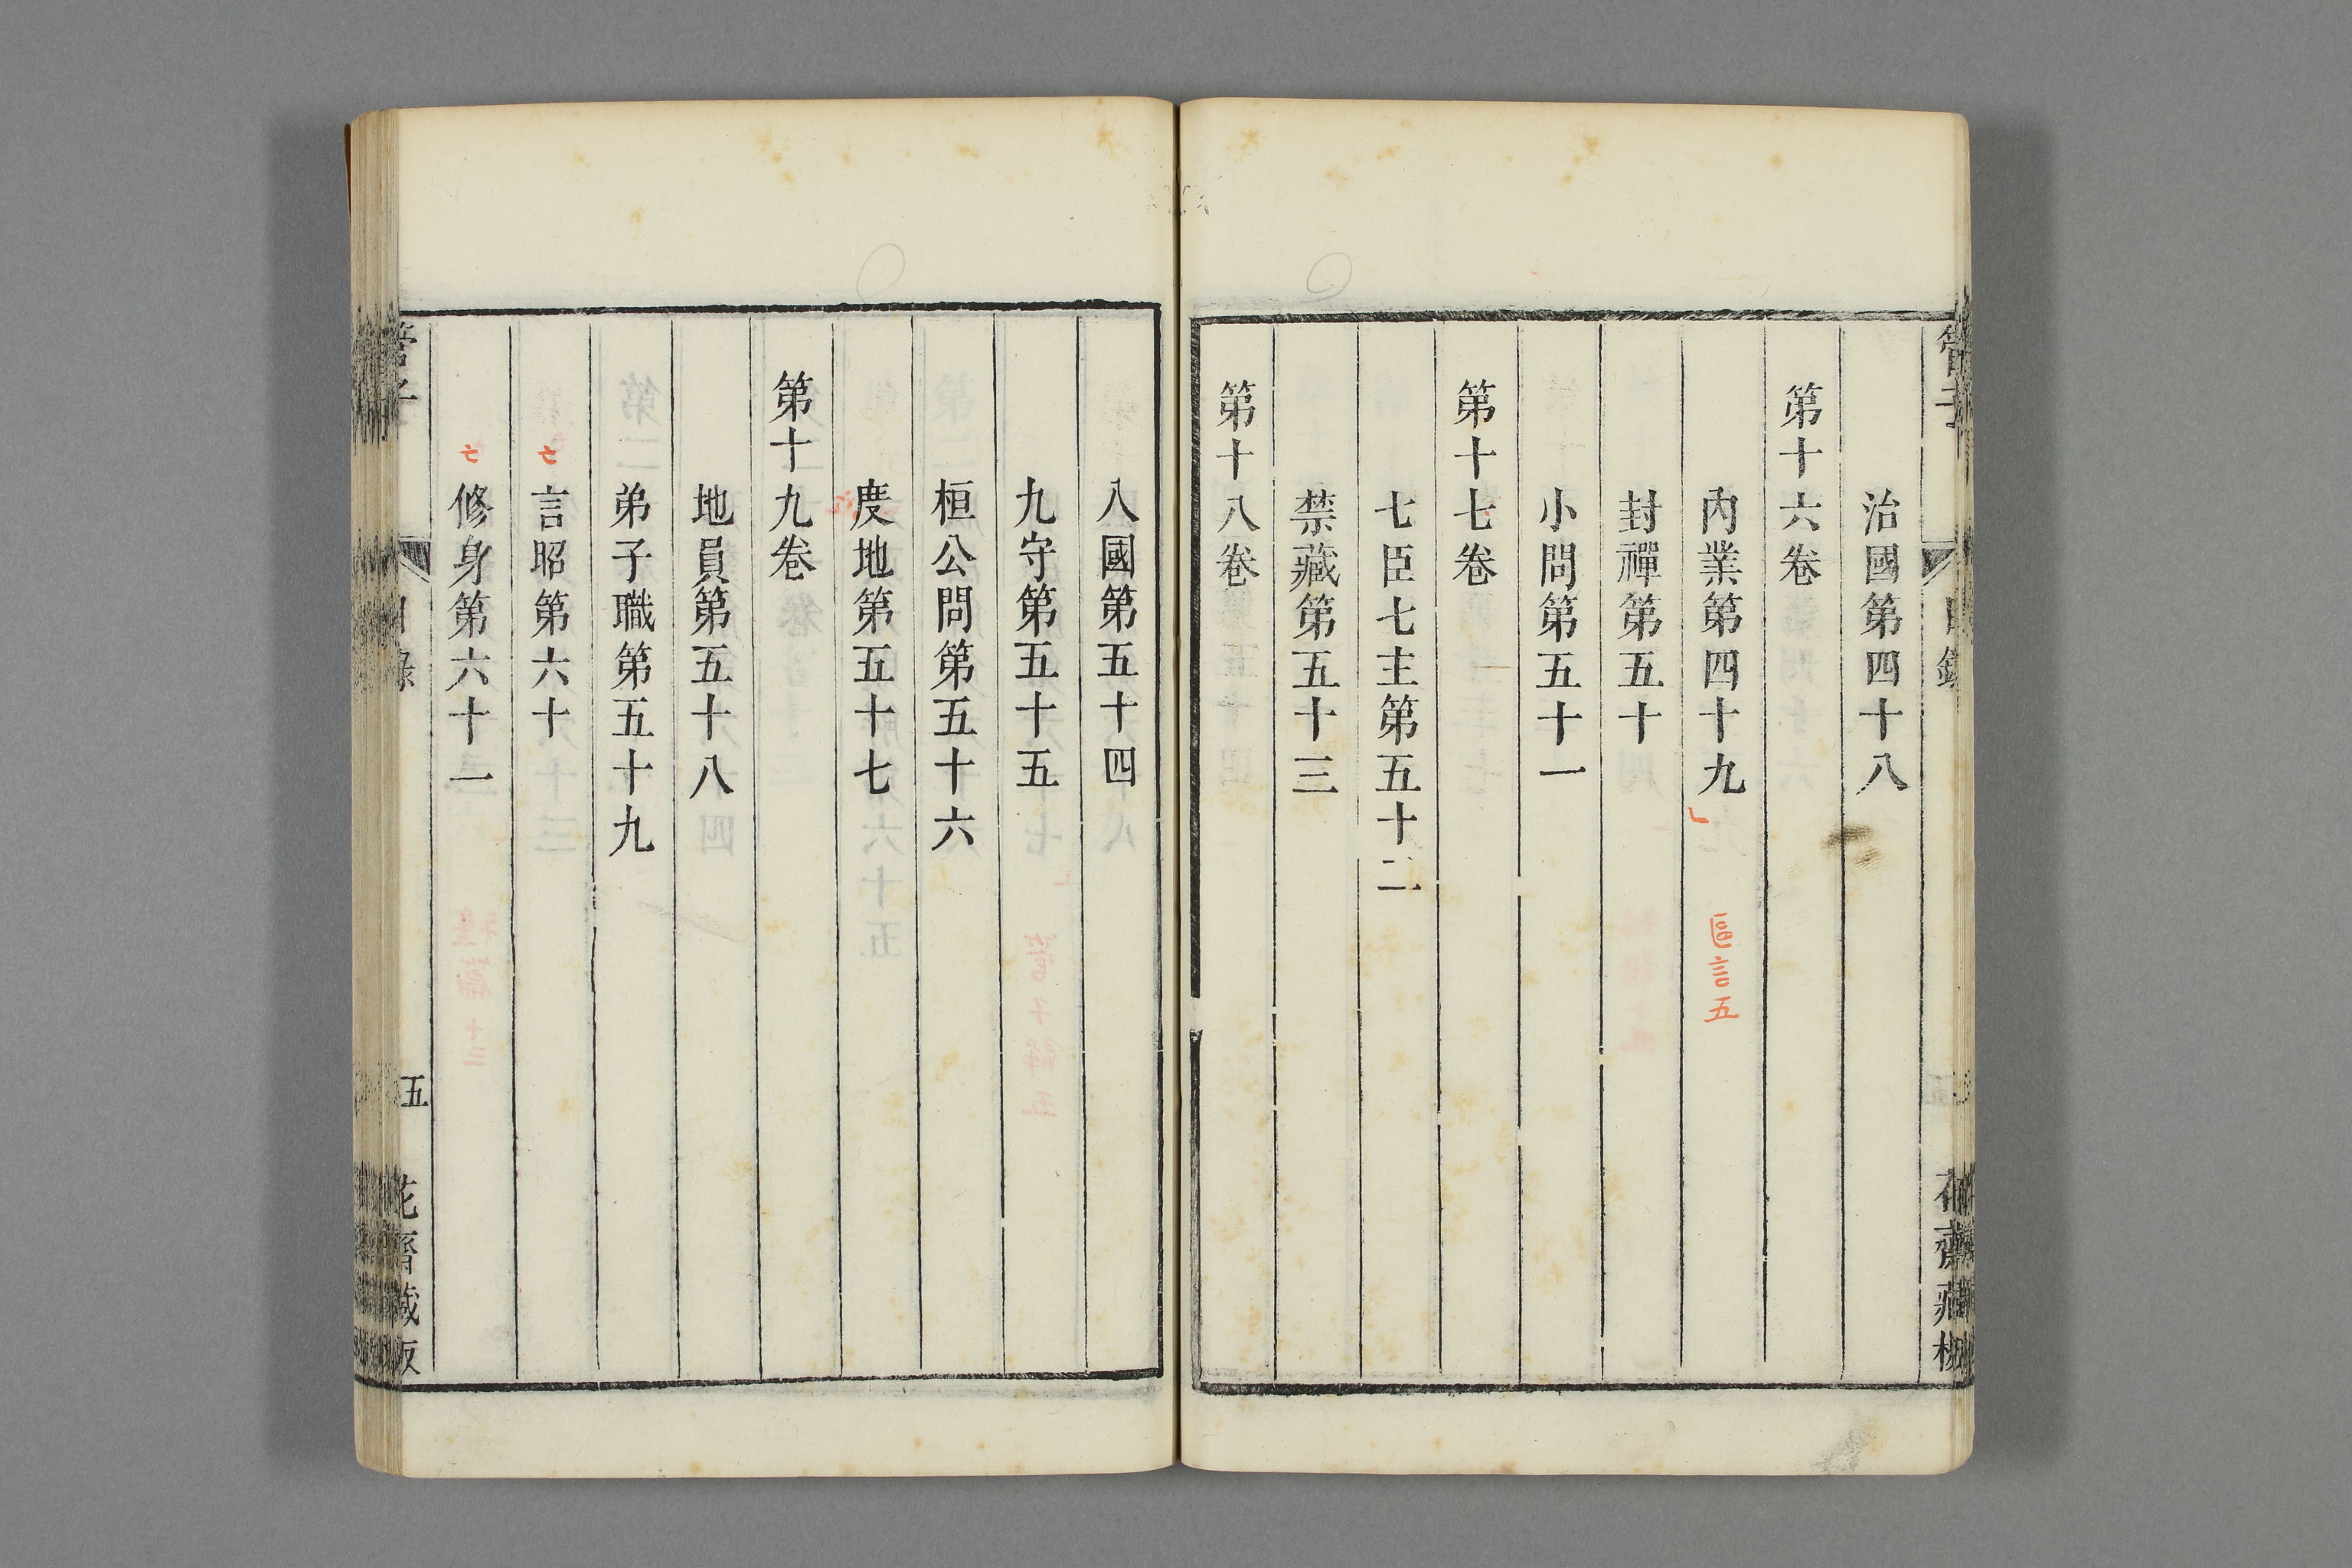 管子
目錄
花齋藏板
治國第四十八
第十六卷
內業第四十九
區言五
封禪第五十
小問第五十一
第十七卷
七臣七主第五十二
禁藏第五十三
第十八卷
八國第五十四
九守第五十五
桓公問第五十六
度地第五十七
第十九卷
地員第五十八
弟子職第五十九
亡
言昭第六十
亡
修身第六十一
管子
目錄
五
花齋藏板